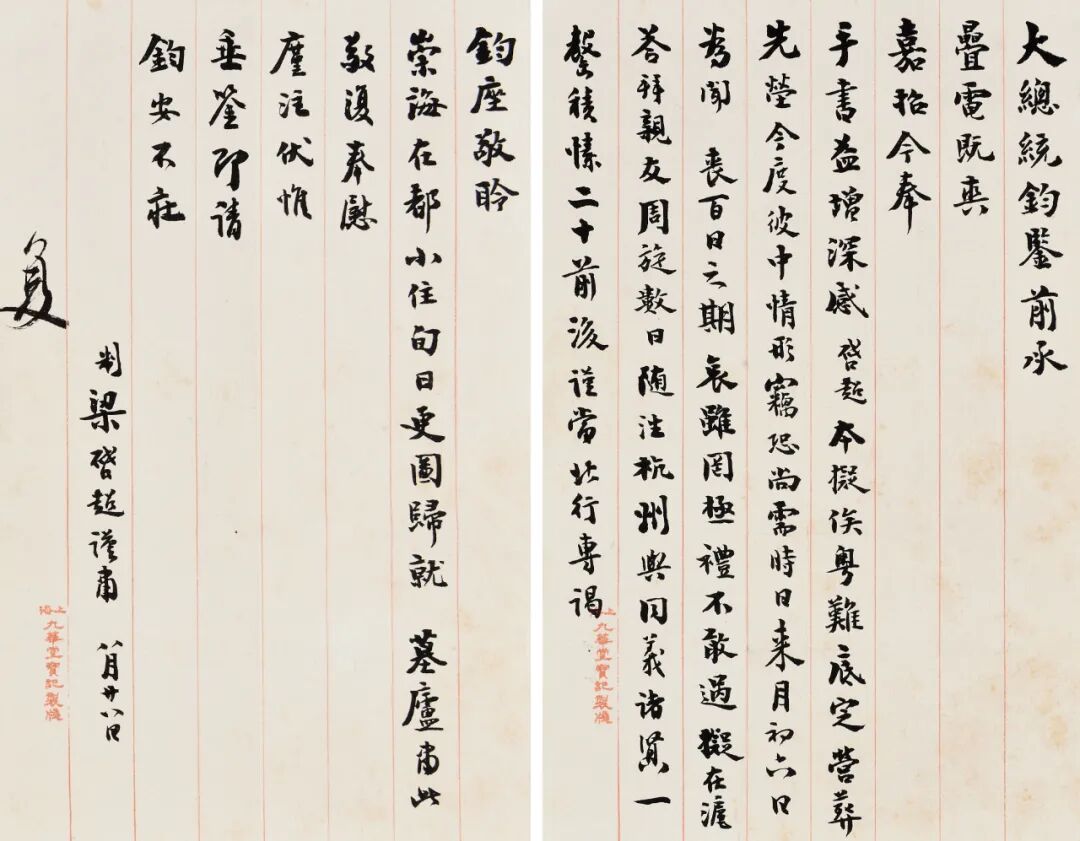 大總統鈞鑒前承
疊電既奭
嘉招今奉
手書益增深感啓超本擬俟粵難底定營葬
先塋今度彼中情形竊恐尚需時日來月初六日
為聞 喪百日之期哀雖罔極禮不敢過擬在滬
荅拜親友周旋數日隨往杭州與同義諸賢一
罄積愫二十前後謹當北行專謁
鈞座敬聆
崇誨在都小住旬日更圖歸就 墓廬肅此
敬復奉慰
廑注伏惟
垂詧卽請
鈞安不莊
制梁啓超謹肅 八月廿八日
复
上海九華堂寶記製牋
上海九華堂寶記製牋